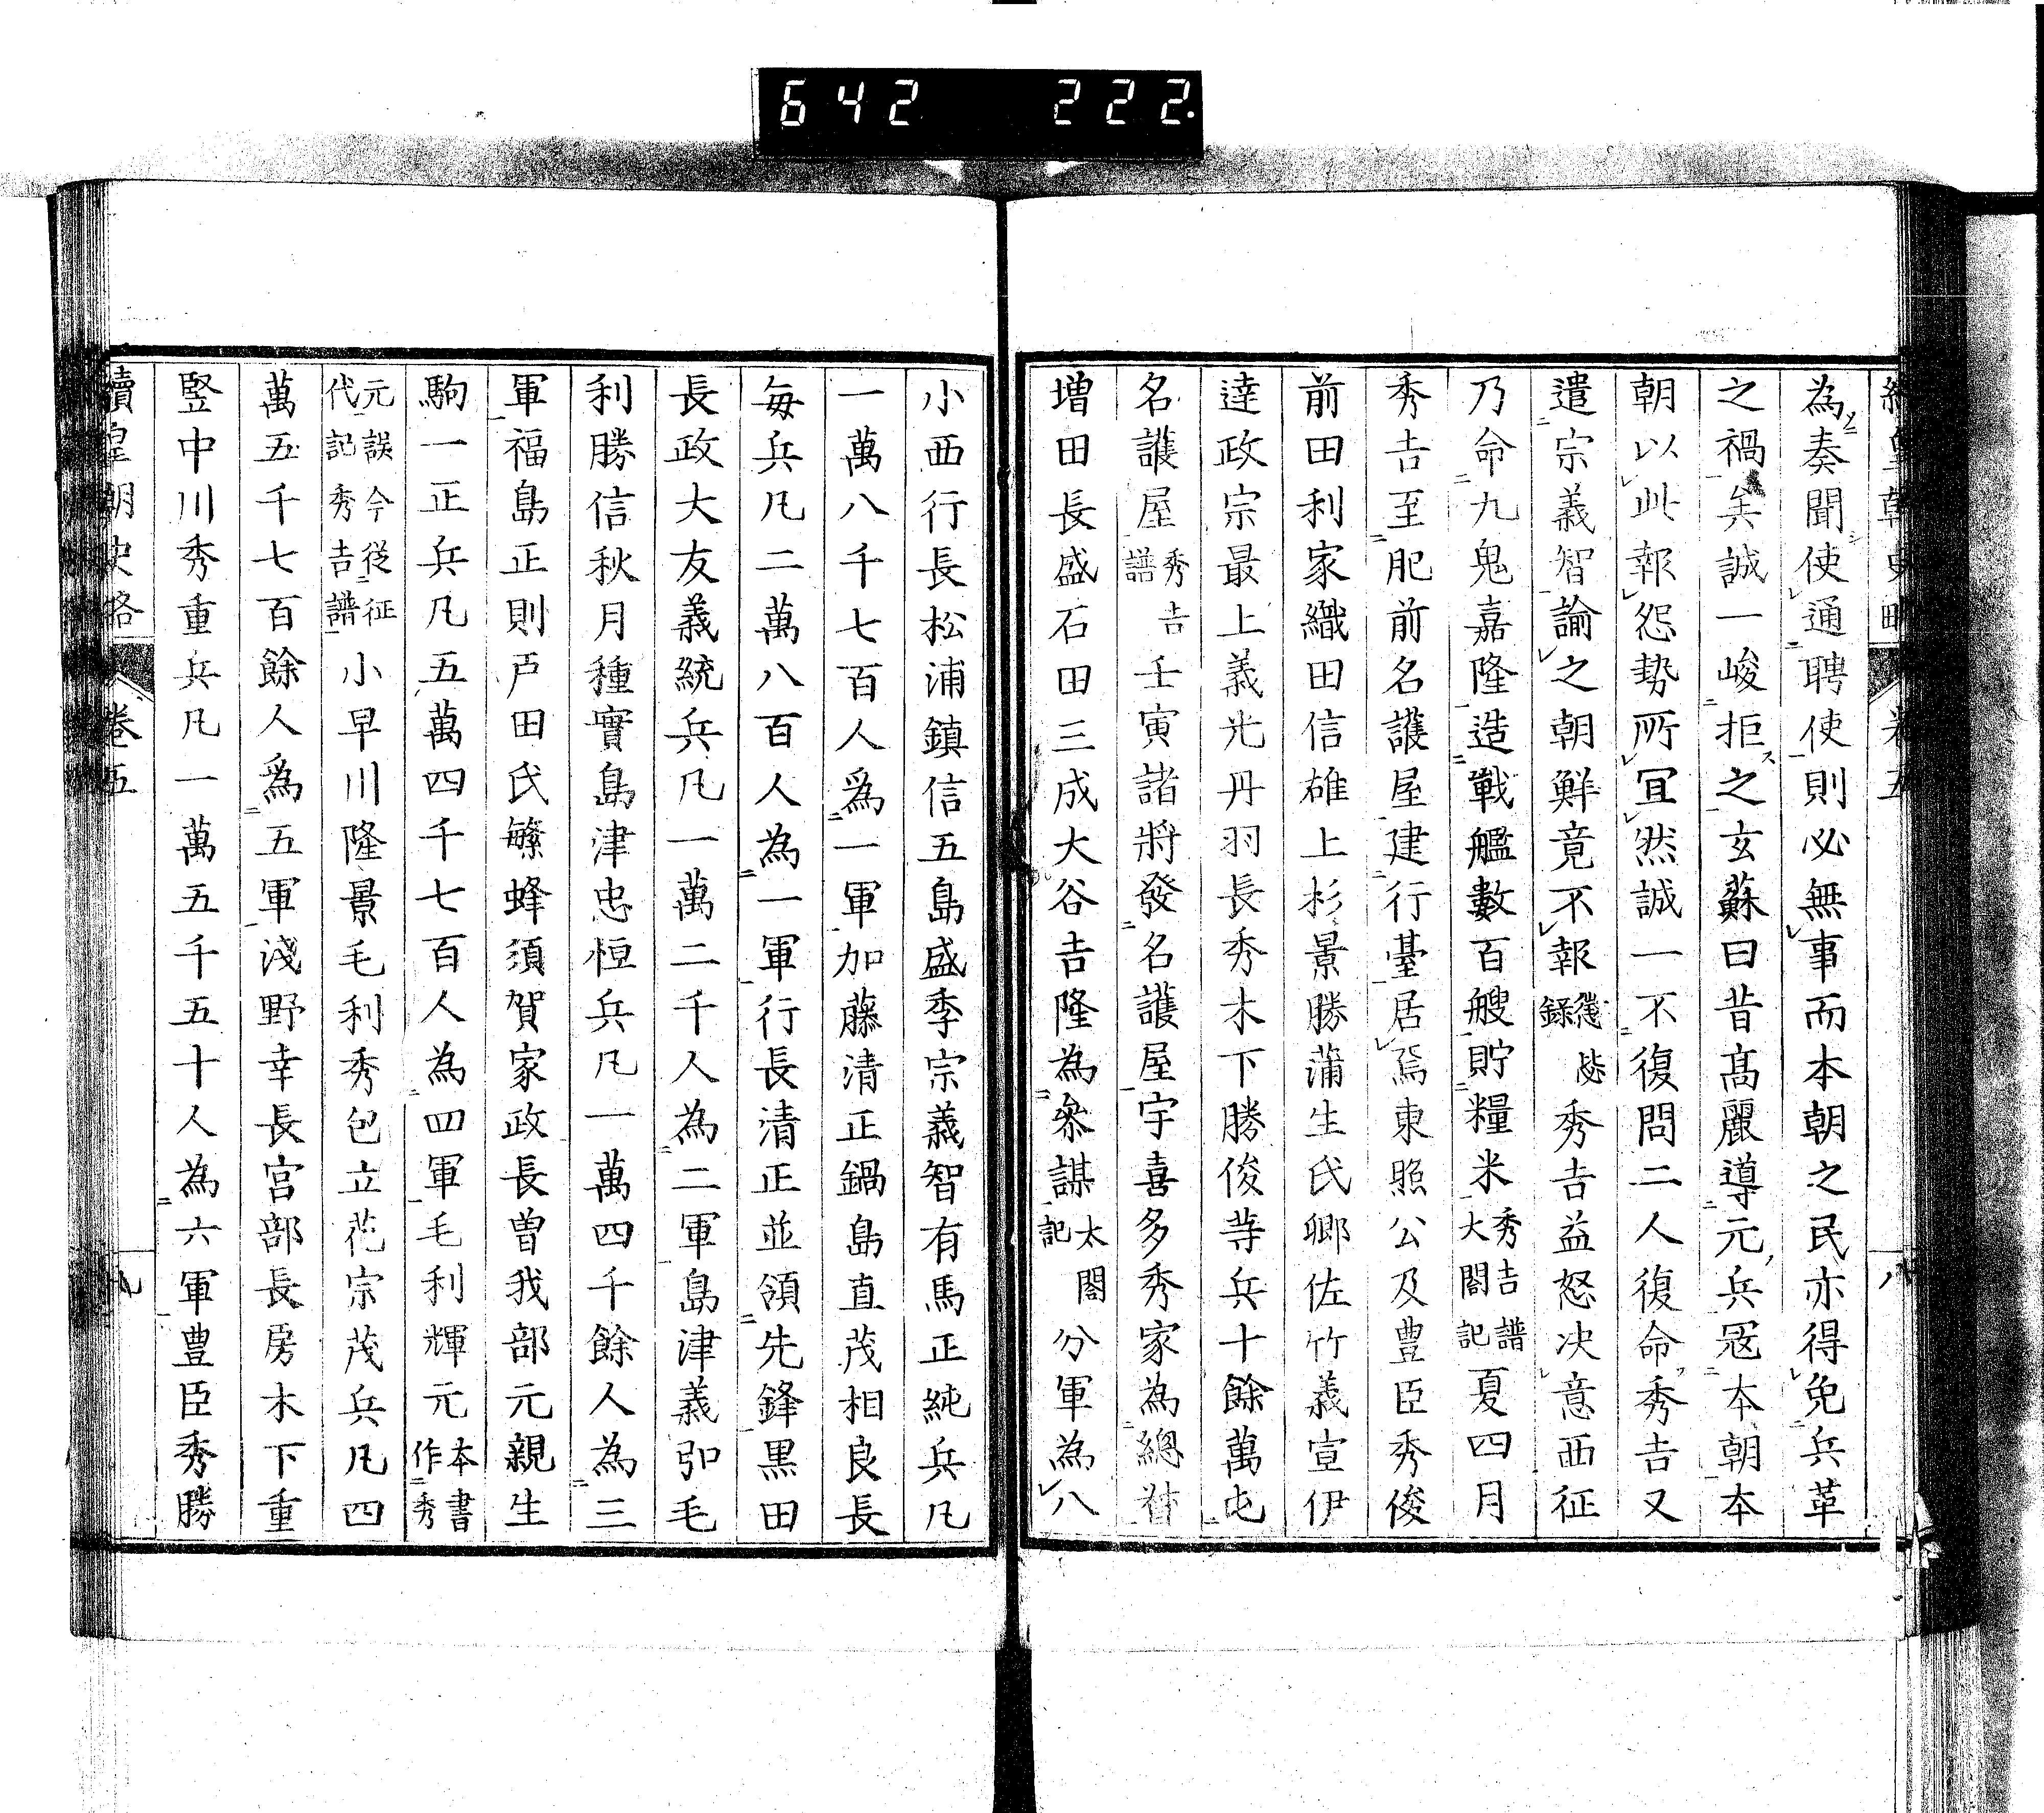 642 222.
續皇朝史略 卷五 八
為奏聞使通聘使則必無事而本朝之民亦得免兵革
之禍矣誠一峻拒之玄蘇曰昔髙麗導元兵冦本朝本
朝以此報怨勢所宜然誠一不復問二人復命秀吉又
遣宗義智諭之朝鮮竟不報懲毖錄秀吉益怒决意西征
乃命九鬼嘉隆造戰艦數百艘貯糧米秀吉譜大閤記夏四月
秀吉至肥前名護屋建行臺居焉東照公及豊臣秀俊
前田利家織田信雄上杉景勝蒲生氏郷佐竹義宣伊
達政宗最上義光丹羽長秀木下勝俊等兵十餘萬屯
名護屋秀吉譜壬寅諸將發名護屋宇喜多秀家為總督
増田長盛石田三成大谷吉隆為叅謀太閤記分軍為八
小西行長松浦鎮信五島盛季宗義智有馬正純兵凡
一萬八千七百人爲一軍加藤清正鍋島直茂相良長
毎兵凡二萬八百人為一軍行長清正並領先鋒黒田
長政大友義統兵凡一萬二千人為二軍島津義弘毛
利勝信秋月種實島津忠恒兵凡一萬四千餘人為三
軍福島正則戸田氏繁蜂須賀家政長曽我部元親生
駒一正兵凡五萬四千七百人為四軍毛利輝元本書作秀
元誤今従征代記秀吉譜小早川隆景毛利秀包立花宗茂兵凡四
萬五千七百餘人爲五軍淺野幸長宫部長房木下重
堅中川秀重兵凡一萬五千五十人為六軍豊臣秀勝
續皇朝史略 卷五 九